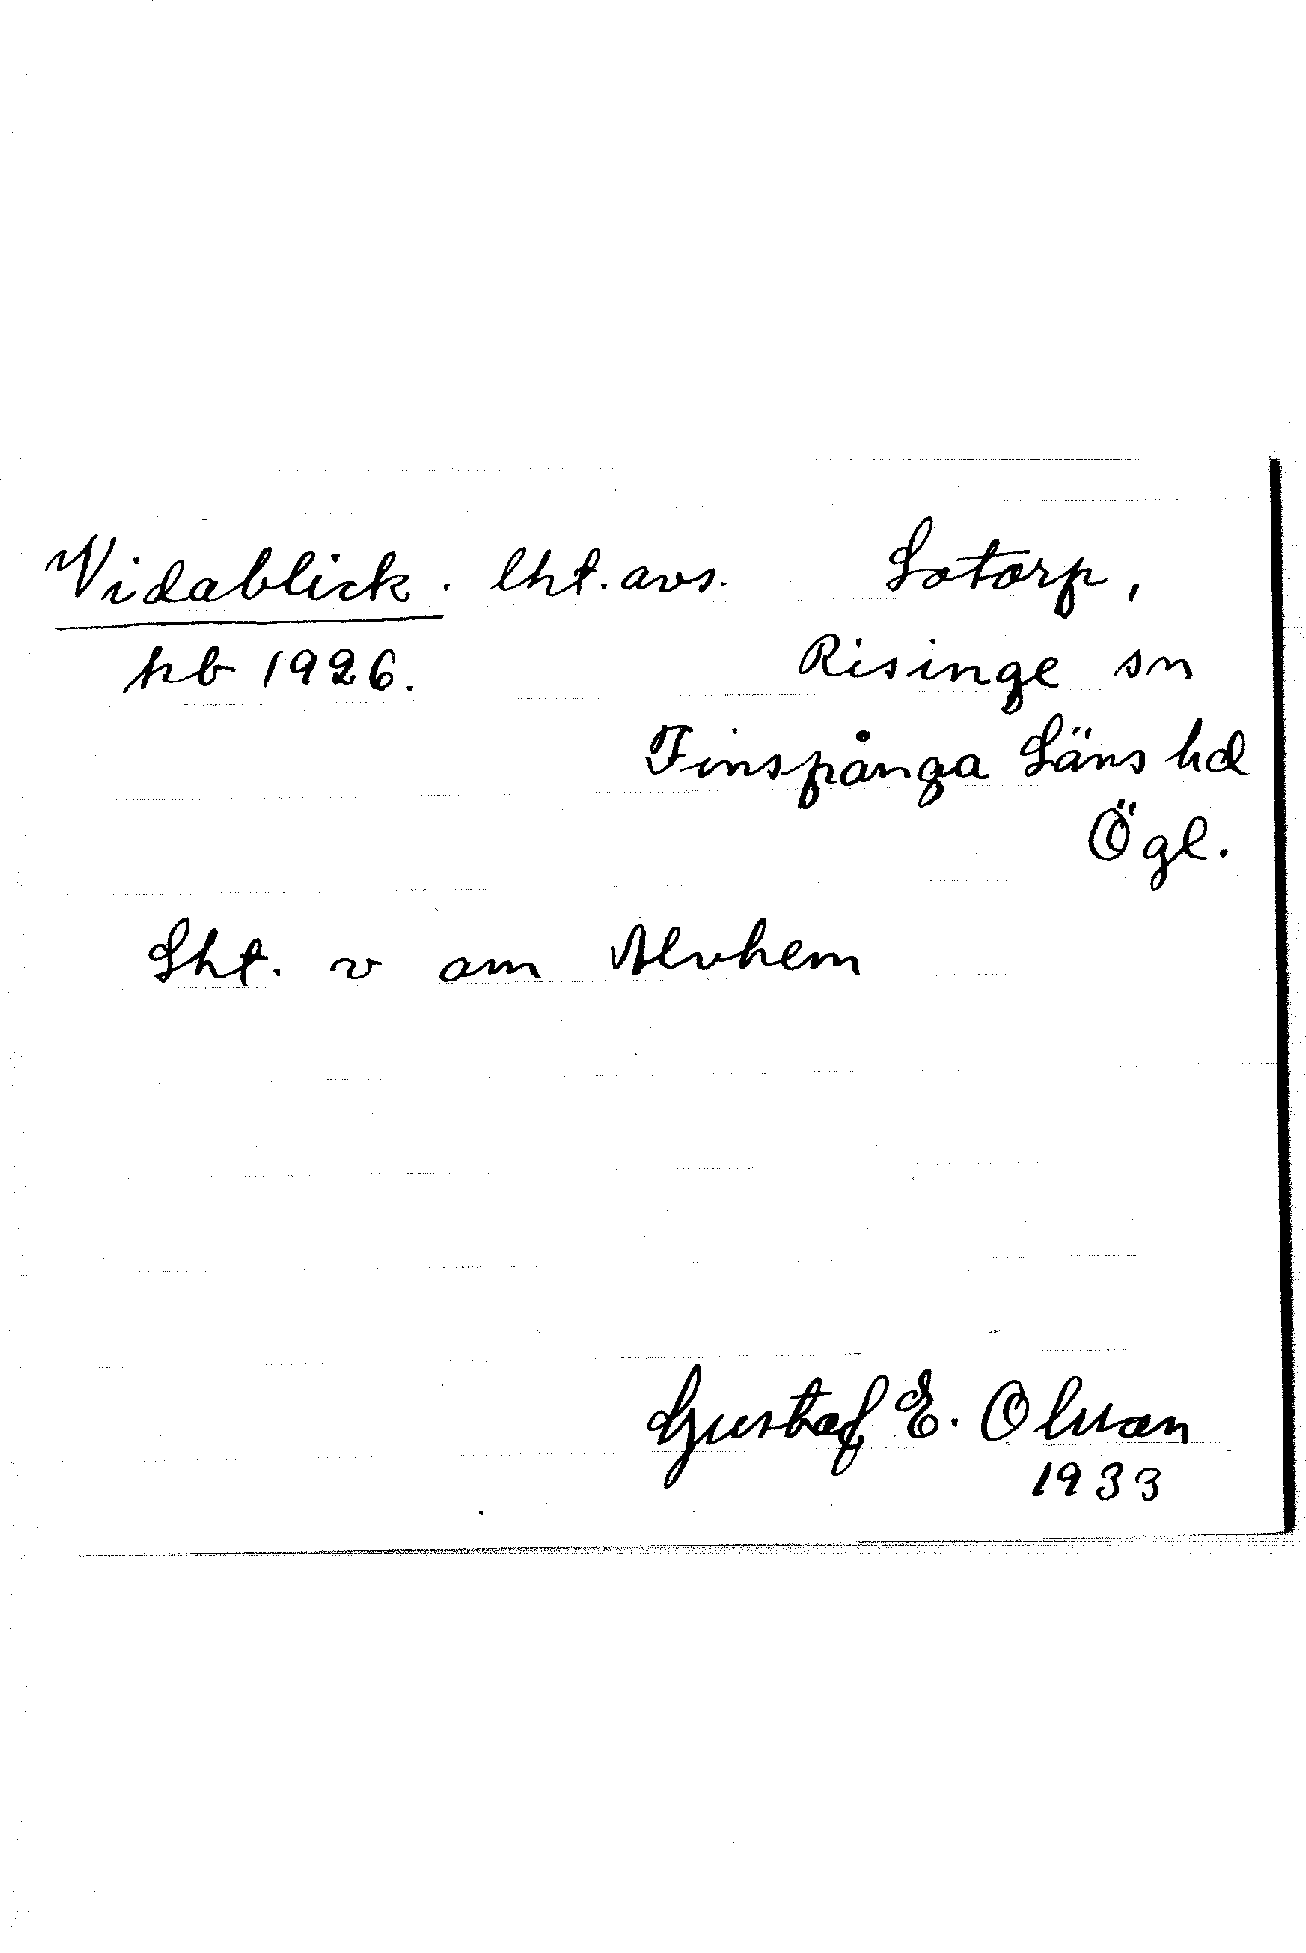 Vidablick. lht. avs. Lotorp,
hb 1926. Risinge sn
Finspånga Läns hd
Ögl.
Lht. v om Alvhem
Gustaf E. Olsson
1933